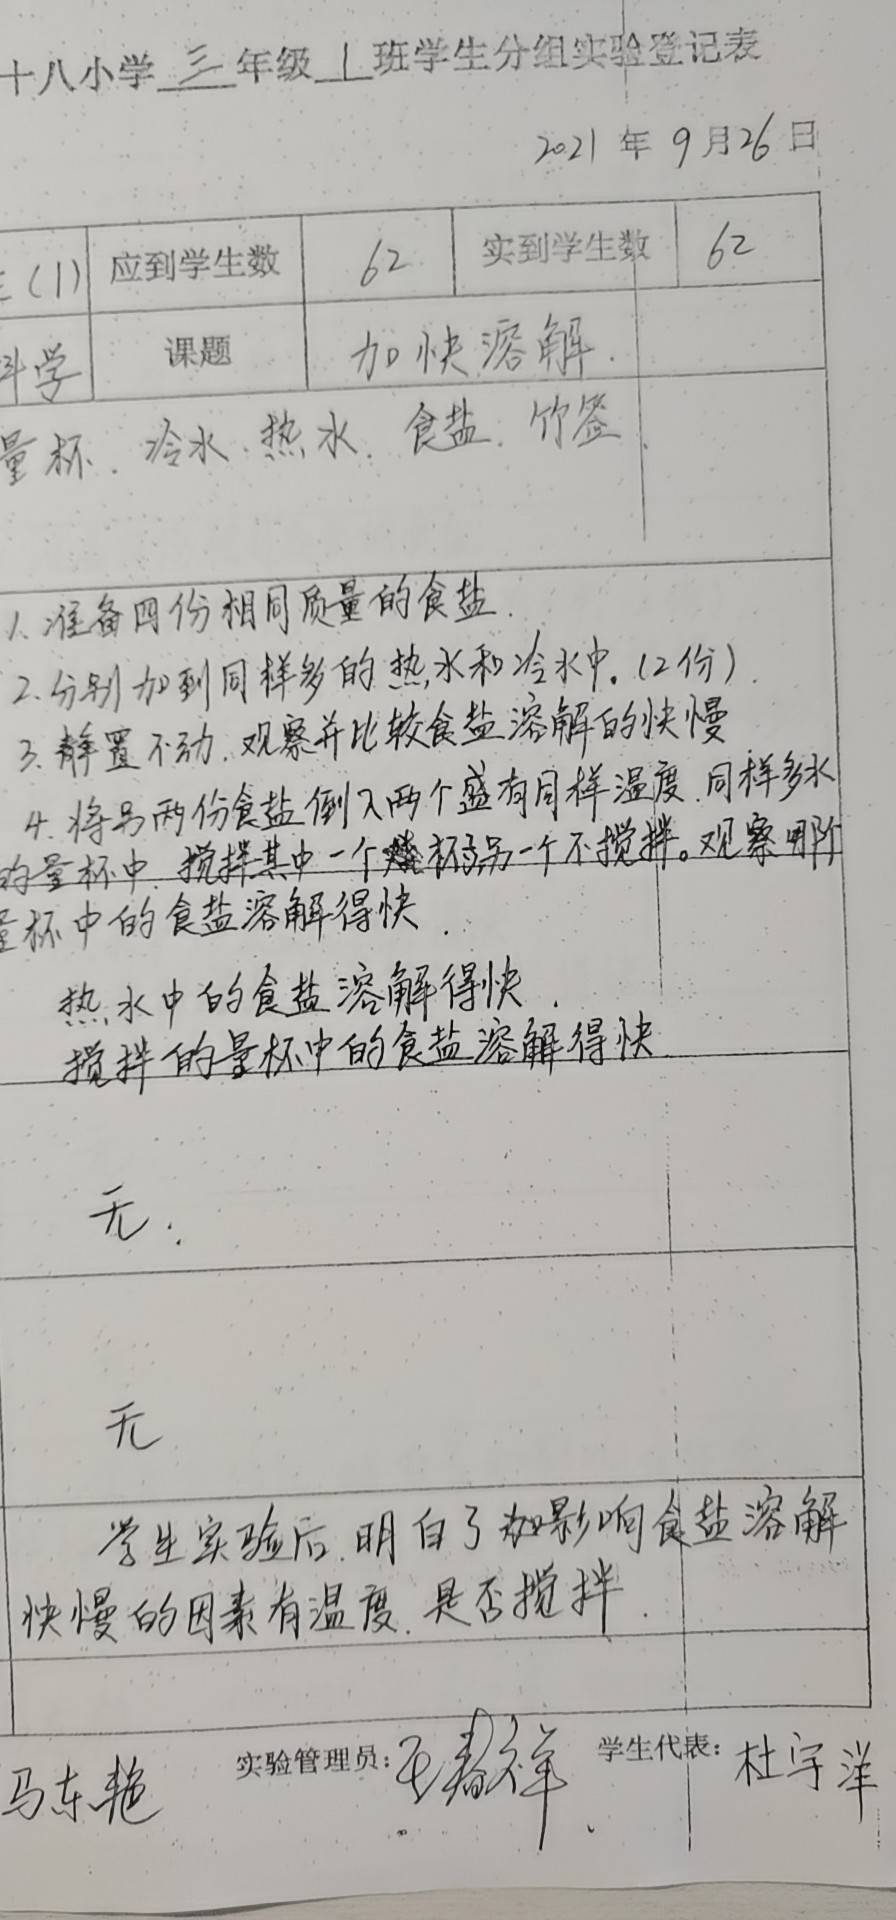 十八小学三年级1班学生分组实验登记表
2021年9月26日
三(1) 应到学生数 62 实到学生数 62
科学 课题 加快溶解.
量杯、冷水、热水、食盐、竹签.
1. 准备四份相同质量的食盐.
2. 分别加到同样多的热水和冷水中。(2份).
3. 静置不动,观察并比较食盐溶解的快慢
4. 将另两份食盐倒入两个盛有同样温度、同样多水
的量杯中,搅拌其中一个 杯,另一个不搅拌。观察哪个
量杯中的食盐溶解得快.
热水中的食盐溶解得快.
搅拌的量杯中的食盐溶解得快.
无.
无
学生实验后,明白了 影响食盐溶解
快慢的因素有温度、是否搅拌.
马东艳 实验管理员: 学生代表: 杜宇洋